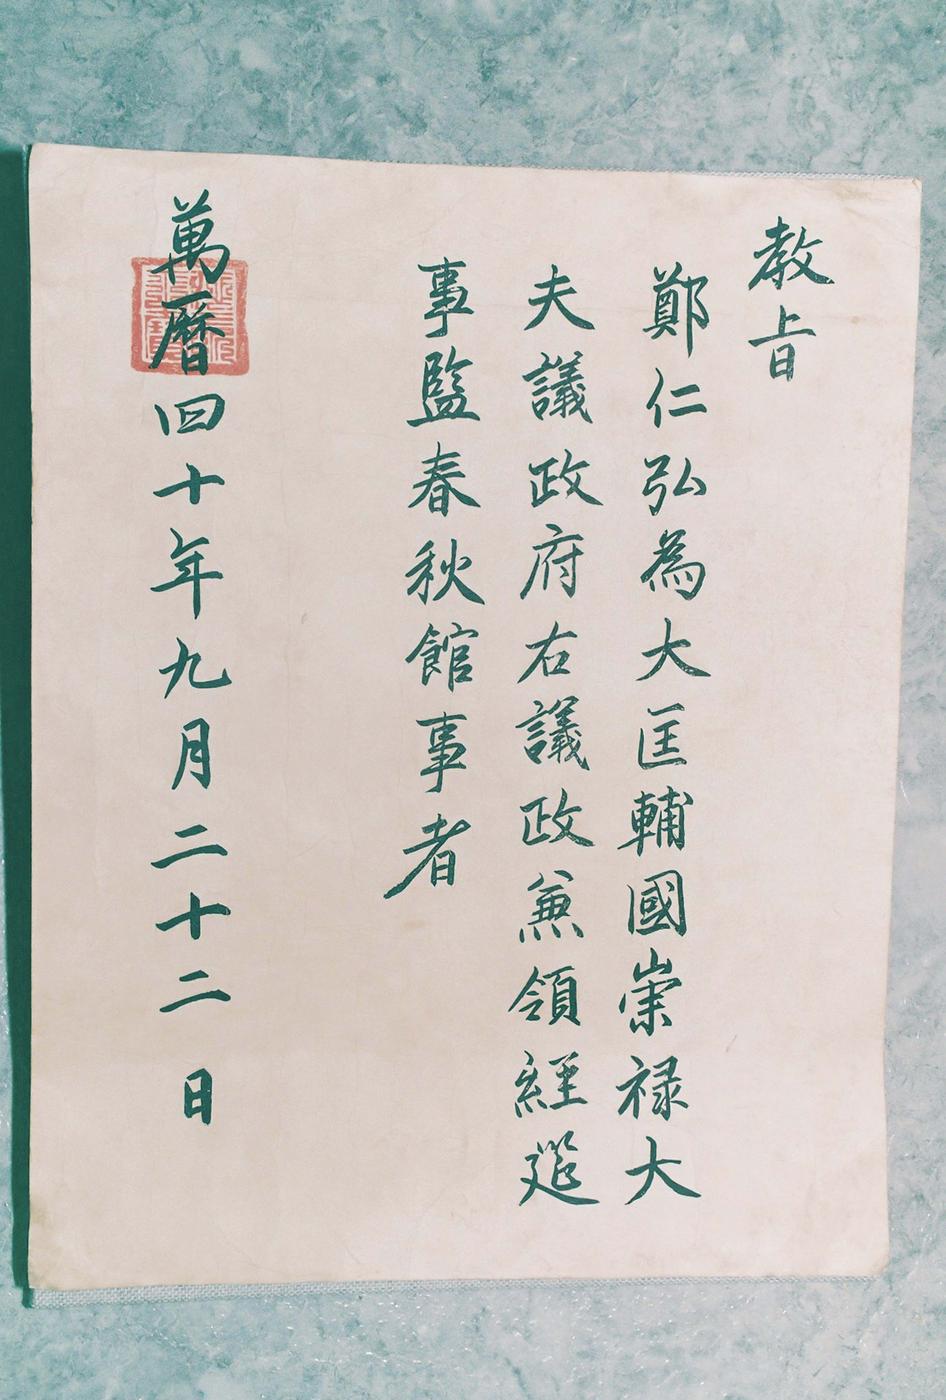 教旨
鄭仁弘為大匡輔國崇禄大
夫議政府右議政兼領經筵
事監春秋館事者
萬曆四十年九月二十二日